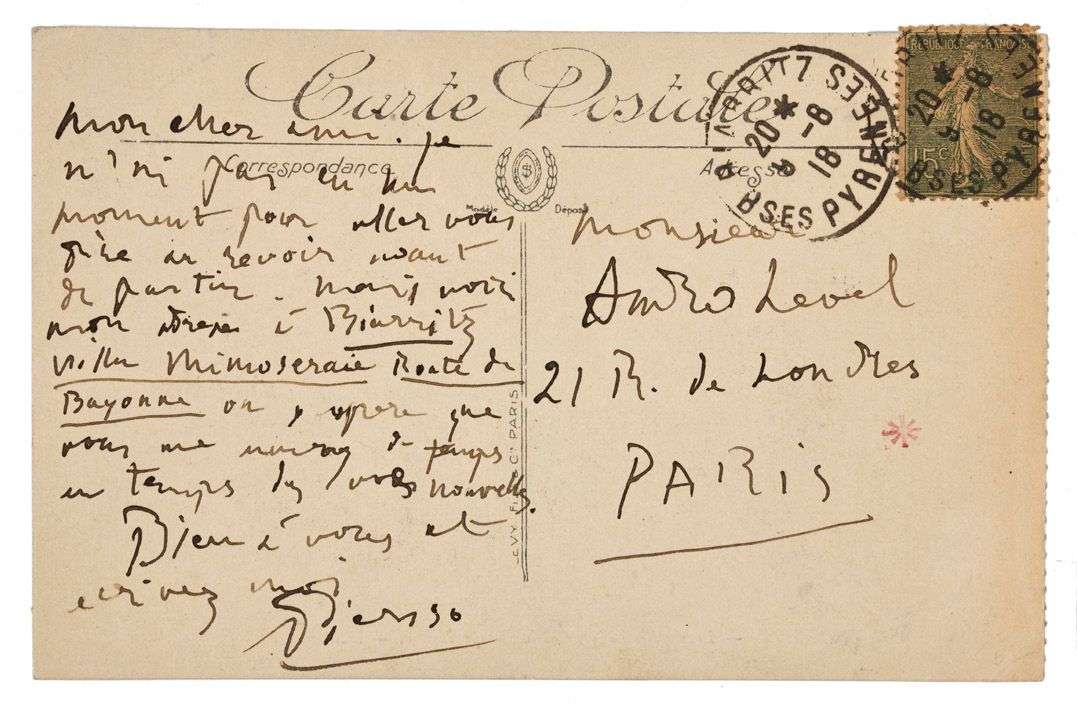 Carte Postale
Correspondance
Adresse
Modèle Déposé
mon cher ami. je
n'ai pas eu un
moment pour aller vous
dire au revoir avant
de partir. mais voici
mon adresse à Biarritz
Villa Mimoseraie Route de
Bayonne ou j'espere que
vous me de temps
en temps des vos nouvelles.
Bien à vous et
ecrivez moi
Picasso
Monsieur
André Level
21 R. de Londres
PARIS
LEVY FILS & Cie PARIS
BIARRITZ
20 * 3 -8 18
BSES PYRENEES
REPUBLIQUE FRANÇAISE
15c
20 * 3 -8 18
BSES PYRENEES